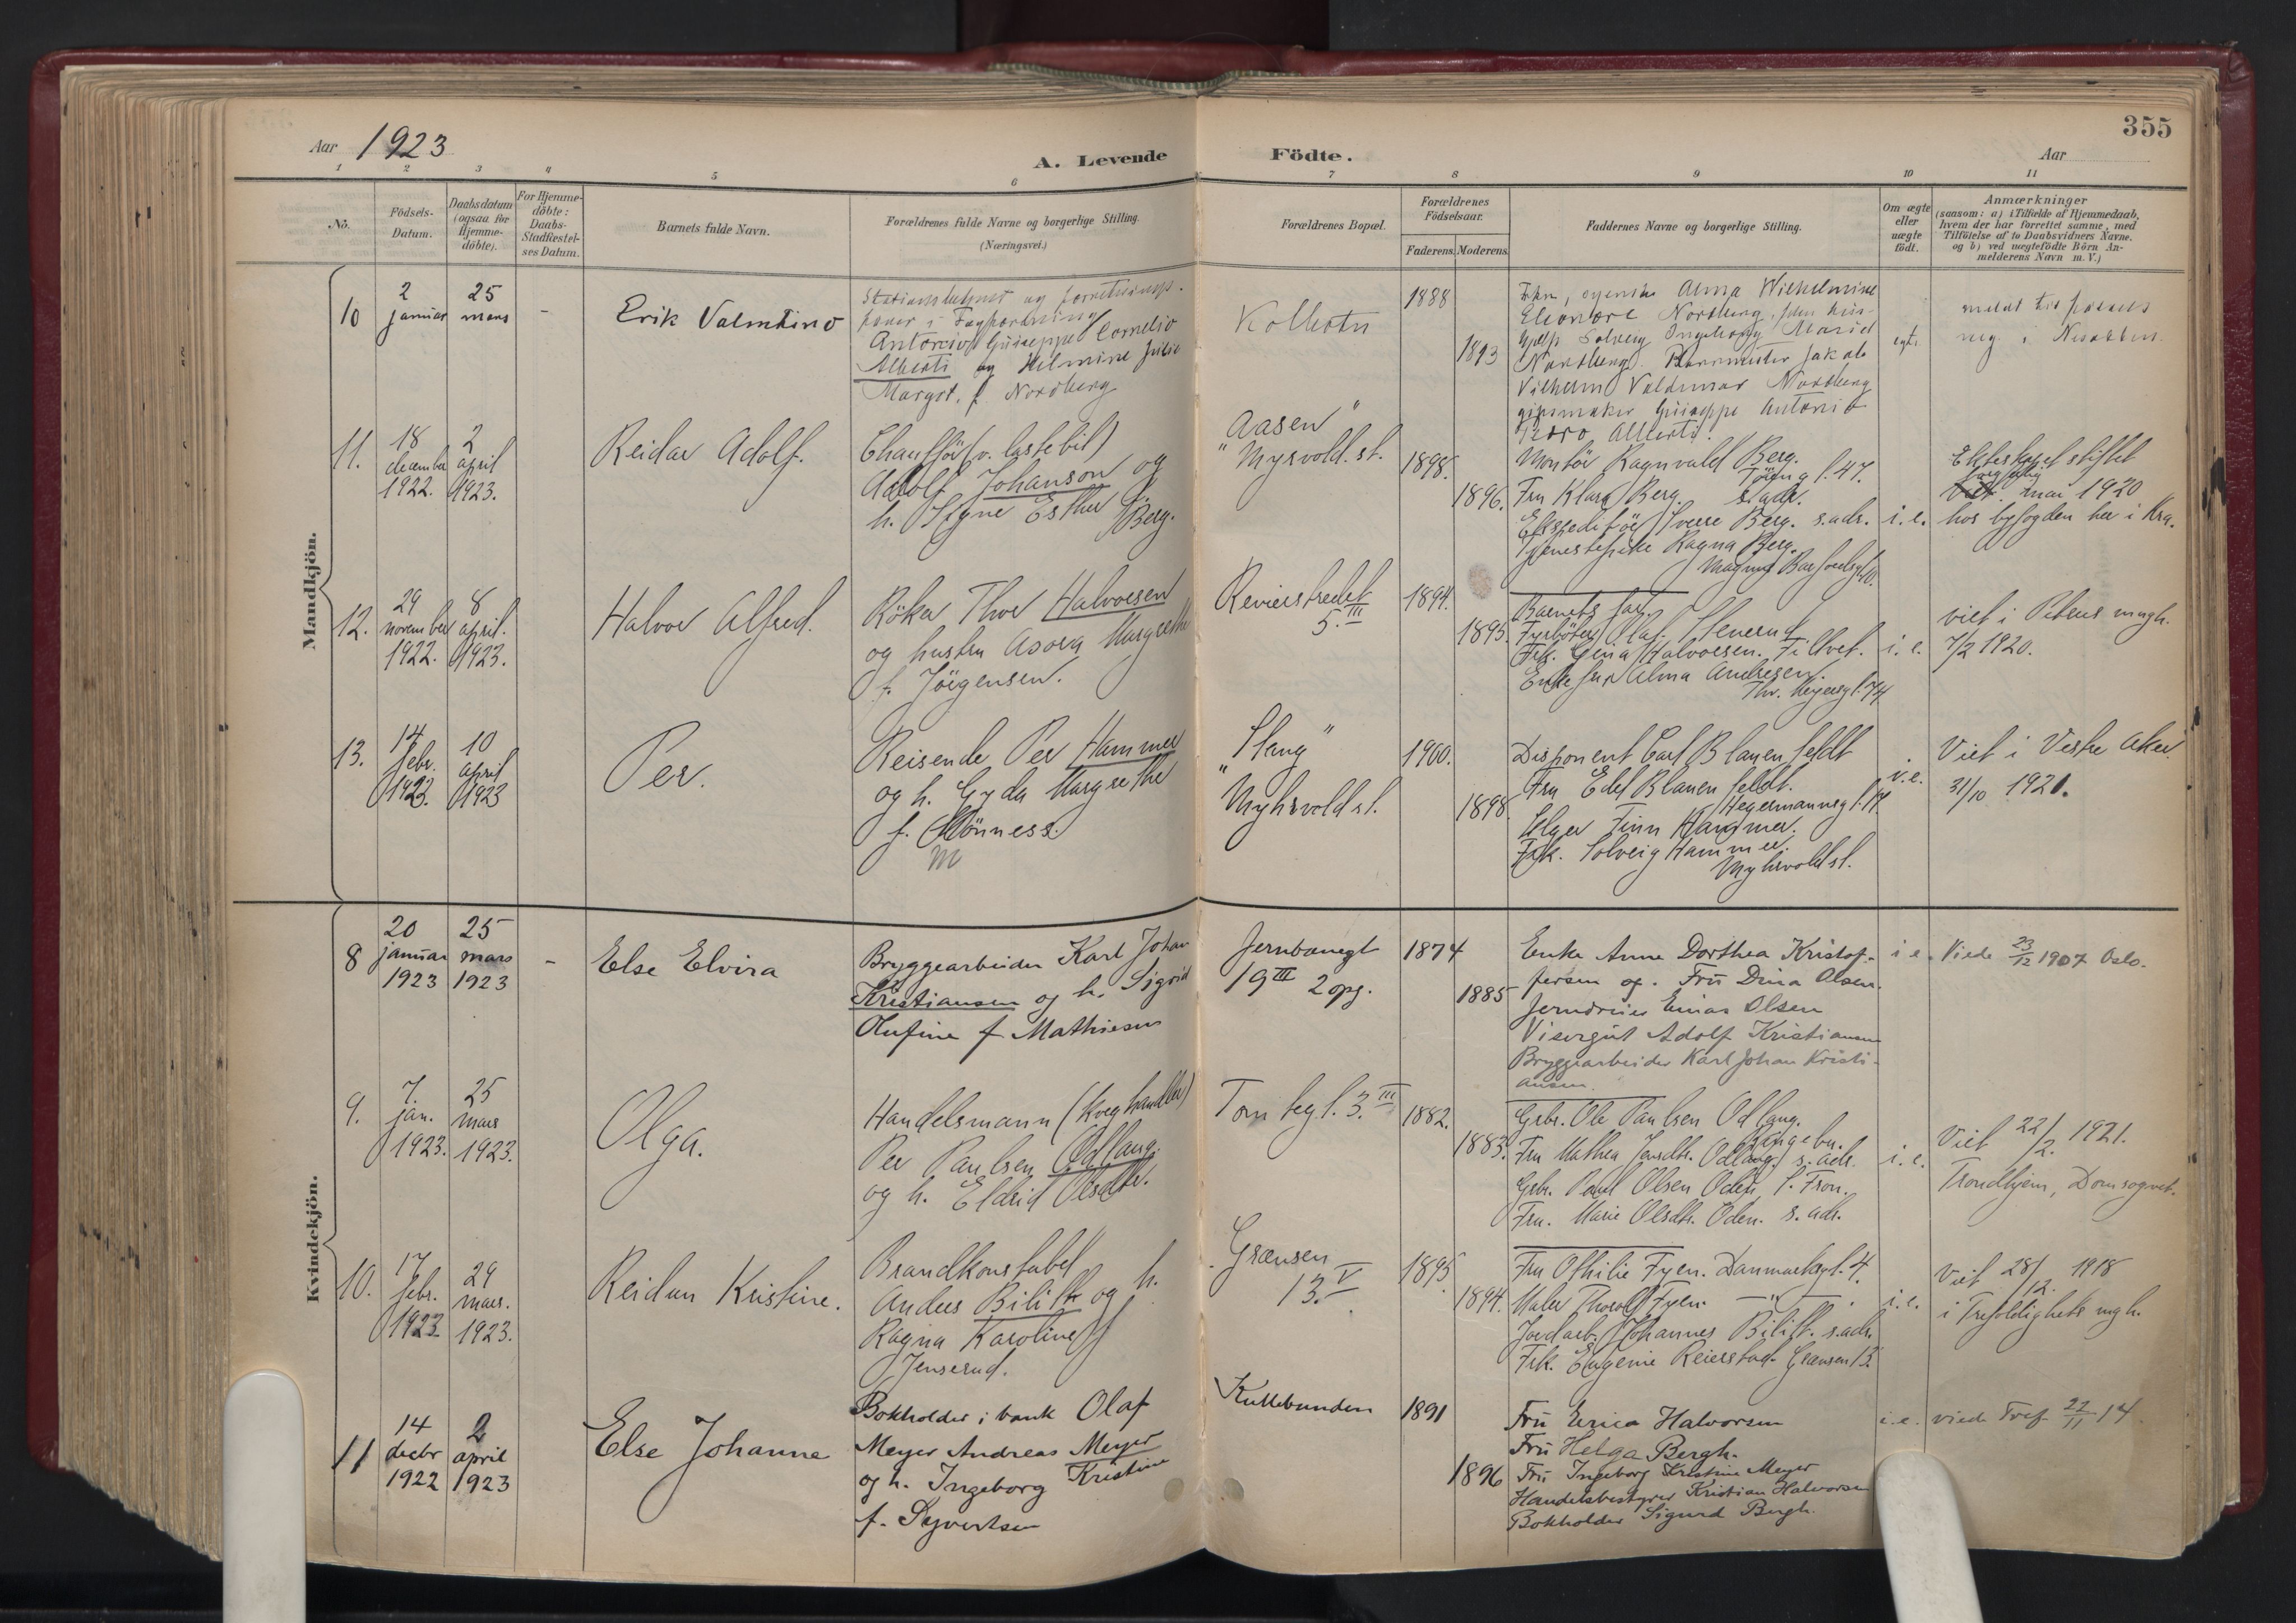 355
Aar 1923
A. Levende Födte.
Aar
1 2 3 4 5 6 7 8 9 10 11
No.
Födsels-
Datum.
Daabsdatum
(ogsaa for
Hjemme-
döbte).
For Hjemme-
döbte:
Daabs-
Stadfæstel-
ses Datum.
Barnets fulde Navn.
Forældrenes fulde Navne og borgerlige Stilling.
(Næringsvei.)
Forældrenes Bopæl.
Forældrenes
Födselsaar.
Faderens. Moderens.
Faddernes Navne og borgerlige Stilling.
Om ægte
eller
uægte
födt.
Anmærkninger
(saasom: a) i Tilfælde af Hjemmedaab,
hvem der har forrettet samme, med
Tilföielse af to Daabsvidners Navne.
og b) ved uægtefödte Börn An-
melderens Navn m. V.)
Mandkjön.
10
2
januar
25
mars
-
Erik Valentino
Antonio Giuseppe Cornelio
Alberti og Helmine Julie
Margot, f. Nordberg
Kolbotn
1888
1893
Alma Wilhelmine
Eleonore Nordberg,
Solveig Ingeborg Marie
Nordberg. Jakob
Vilhelm Valdemar Nordberg
gipsmaker Giuseppe Antonio
Alberti.
egte.
11.
18
december
1922.
2
april
1923.
Reidar Adolf.
Chaufför (v. lastebil)
Adolf Johanson og
h. Signe Esther f. Berg.
"Aasen"
Myrvold. st.
1898.
1896.
Montör Ragnvald Berg.
47.
Fru Klara Berg. s. adr.
Ekspeditör Sverre Berg. s. adr.
Tjenestepike Ragna Berg.
i. e.
Ektestapet stiftet
mai 1920
hos byfogden her i Kra.
12.
29
november
1922.
8
april.
1923.
Halvor Alfred.
Röker Thor Halvorsen
og hustru Asora Margrethe
f. Jörgensen.
Revierstredet
5. III
1894.
1895.
Barnets far.
Fyrböter Olaf Stenerud
Frk. Gina Halvorsen.
Enkefru Alma Andresen.
Thv. Meyersg. 74
i. e.
viet i Petrus mngh.
7/2 1920.
13.
14
febr.
1923.
10
april
1923
Per.
Reisende Per Hammer
og h. Gyda Margrethe
f. Mönness.
M
"Slang"
Myhrvold st.
1900.
1898.
Disponent Carl Blauenfeldt
Fru Edel Blauenfeldt.
Hegermannsg. 17.
Selger Finn Hammer.
Frk. Solveig Hammer.
Myhrvold st.
i. e.
Viet i Vestre Aker
31/10 1921.
Kvindekjön.
8
20
januar
1923
25
mars
1923
-
Else Elvira
Bryggearbeider Karl Johan
Kristiansen og h. Sigrid
Olufine f Mathiesen
Jernbanegt
19 III 2 opg.
1874
1885
Enke Anne Dorthea Kristof-
fersen og. Fru Dina Olsen.
Jerndreier Einar Olsen
Visergut Adolf Kristiansen
Bryggearbeider Karl Johan Kristi-
ansen.
i e.
Viede 23/12 1907 Oslo.
9.
7.
jan.
1923.
25
mars
1923.
Olga.
Handelsmann (kveghandler)
Per Paulsen Odlaug.
og h. Eldrid Olsdtr.
Tomtegt. 3. III
1882.
1883.
Grbr. Ole Paulsen Odlaug.
Ringebu.
Fru Mathea Jensdtr. Odlaug. s. adr.
Grbr. Paul Olsen Oden, S. Fron.
Fru. Marie Olsdtr. Oden. s. adr.
i. e.
Viet 22/2. 1921.
Trondhjem, Domsognet.
10.
17
febr.
1923.
29
mars.
1923.
Reidun Kristine.
Brandkonstabel
Anders Bilitt og h.
Ragna Karoline f.
Jenserud.
Grænsen
13. V
1895
1894.
Fru Othilie Fyen. Danmarksgt. 4.
Maler Thorolf Fyen. — " —.
Jordarb. Johannes Bilitt. s. adr.
Frk. Eugenie Reierstad. Grænsen 13.
i. e.
Viet 28/12. 1918
i Trefoldighets mgh.
11
14
decbr
1922
2
april
1923
Else Johanne
Bokholder i bank Olaf
Meyer Andreas Meyer
og h. Ingeborg Kristine
f. Syvertsen
Kullebunden
1891
1896
Fru Erica Halvorsen
Fru Helga Bergh.
Fru Ingeborg Kristine Meyer
Handelsbestyrer Kristian Halvorsen
Bokholder Sigurd Bergh.
i. e.
viede Tref 22/11 14